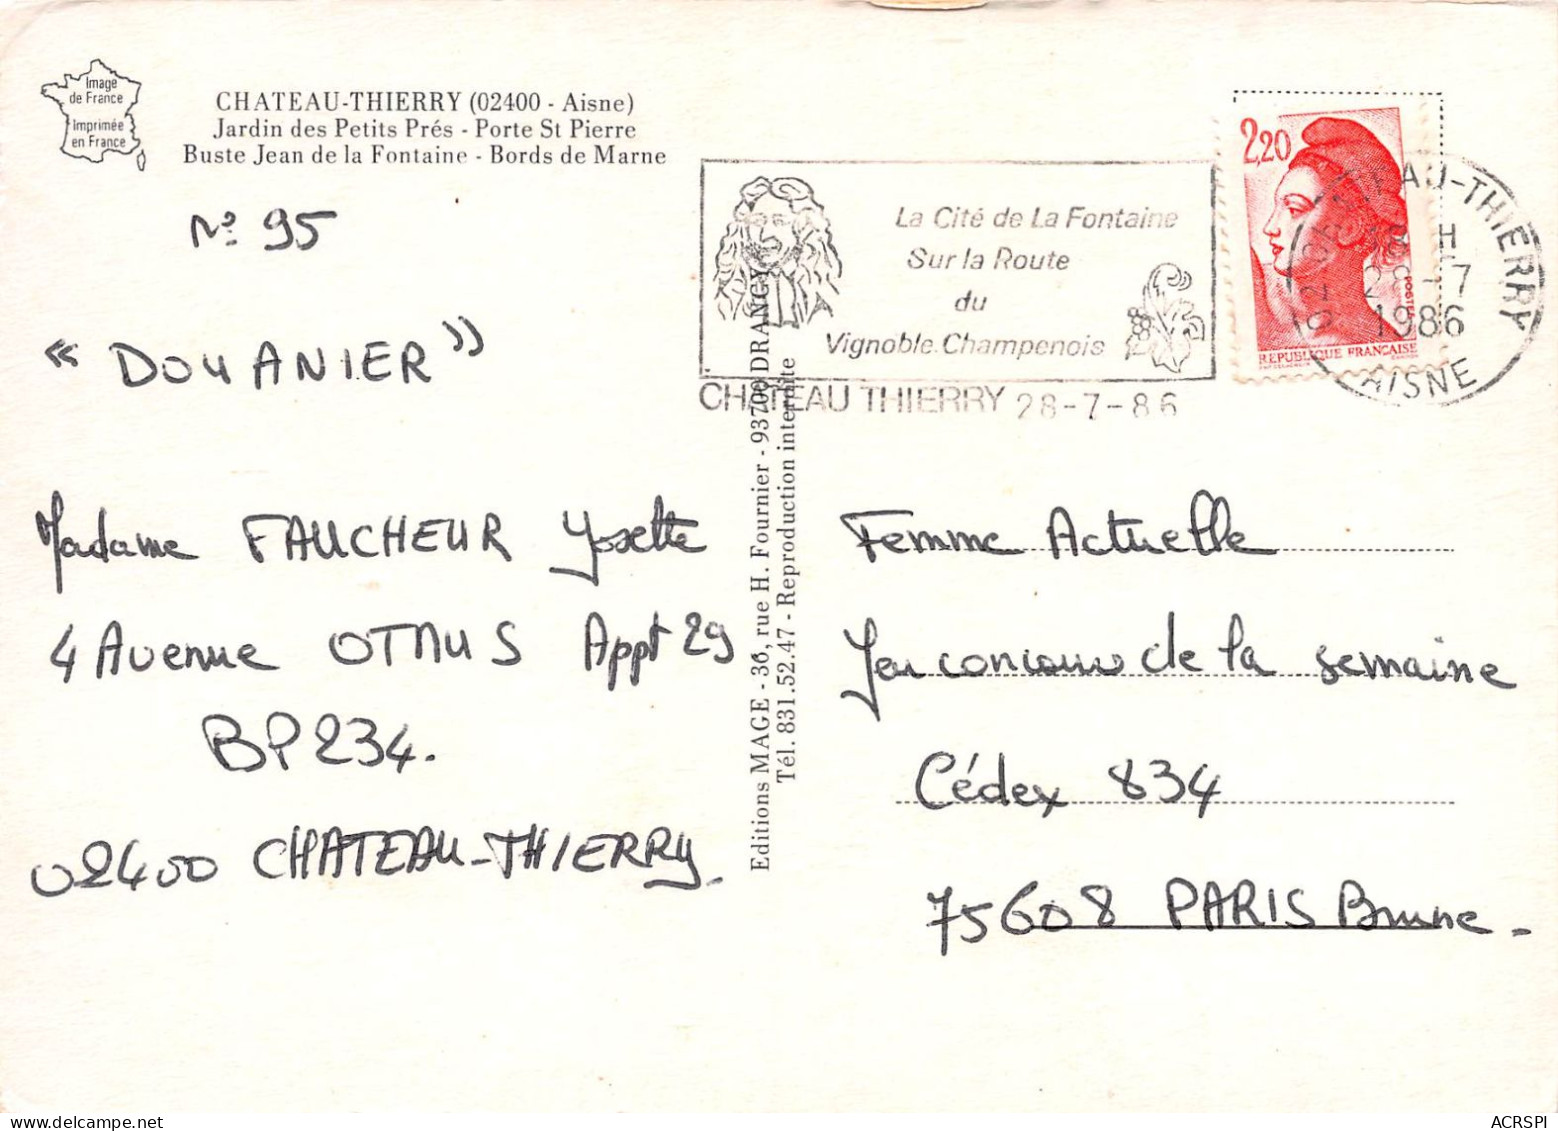 Image
de France
Imprimée
en France
CHATEAU-THIERRY (02400 - Aisne)
Jardin des Petits Prés - Porte St Pierre
Buste Jean de la Fontaine - Bords de Marne
N° 95
" DOUANIER "
Madame FAUCHEUR Yosette
4 Avenue OTMUS Appt 29
BP 234.
02400 CHATEAU-THIERRY.
Editions MAGE - 36, rue H. Fournier - 93700 DRANCY
Tél. 831.52.47 - Reproduction interdite
La Cité de La Fontaine
Sur la Route
du
Vignoble Champenois
CHATEAU THIERRY 28-7-86
2,20
POSTES
REPUBLIQUE FRANÇAISE
02 CHATEAU-THIERRY
H
28 -7
1986
AISNE
Femme Actuelle
Jeu concours de la semaine
Cédex 834
75608 PARIS Brune.
ACRSPI